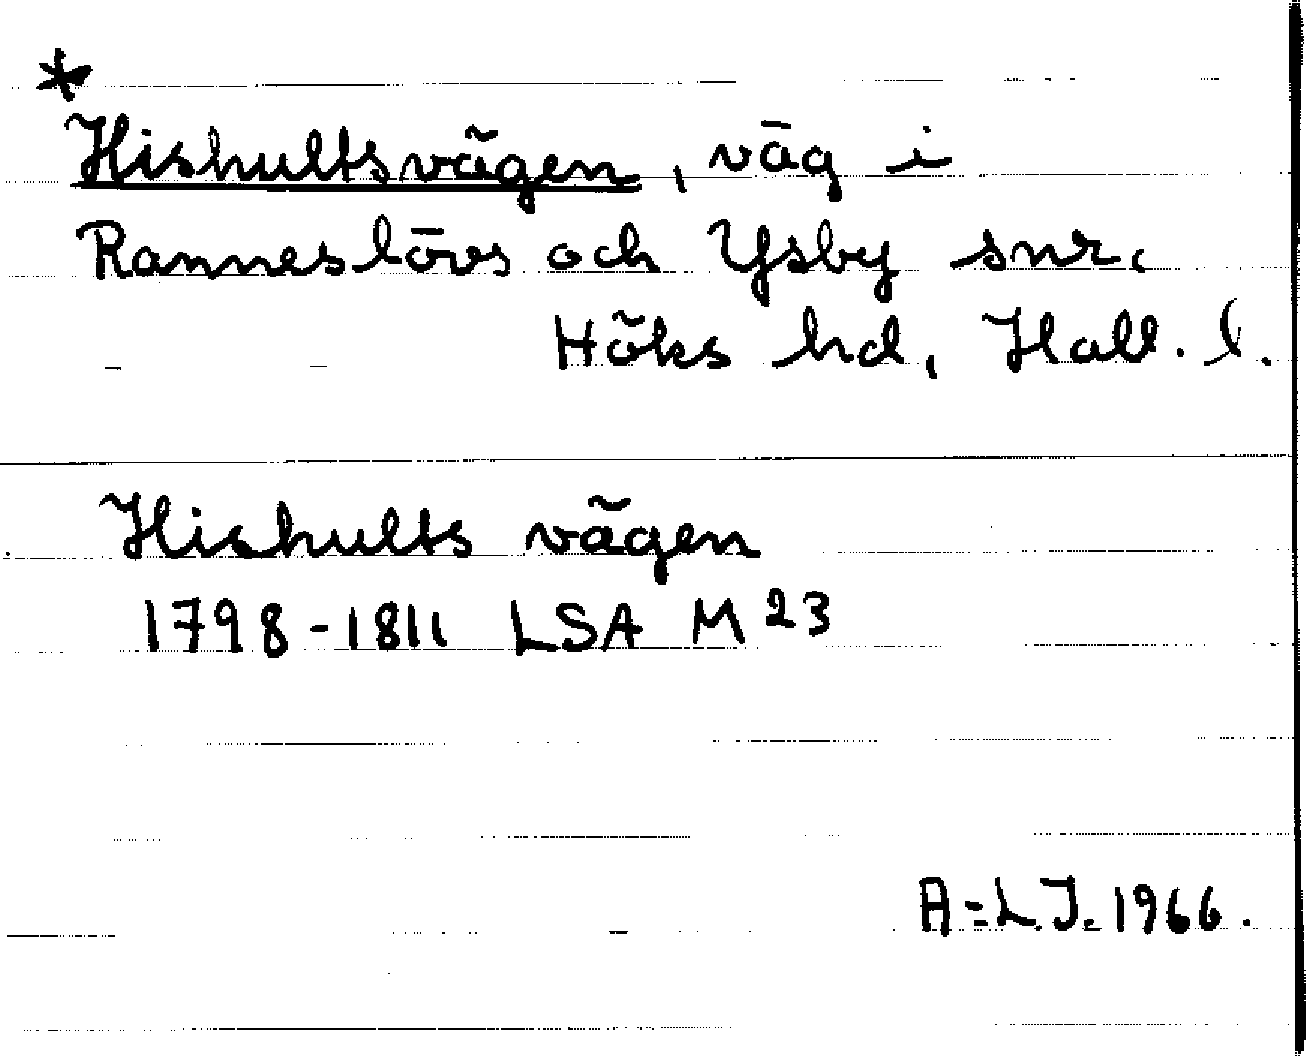 *
Hishultsvägen, väg i
Ranneslövs och Ysby snr.
Höks hd, Hall. l.
Hishults vägen
1798-1811 LSA M 23
A=L.J. 1966.